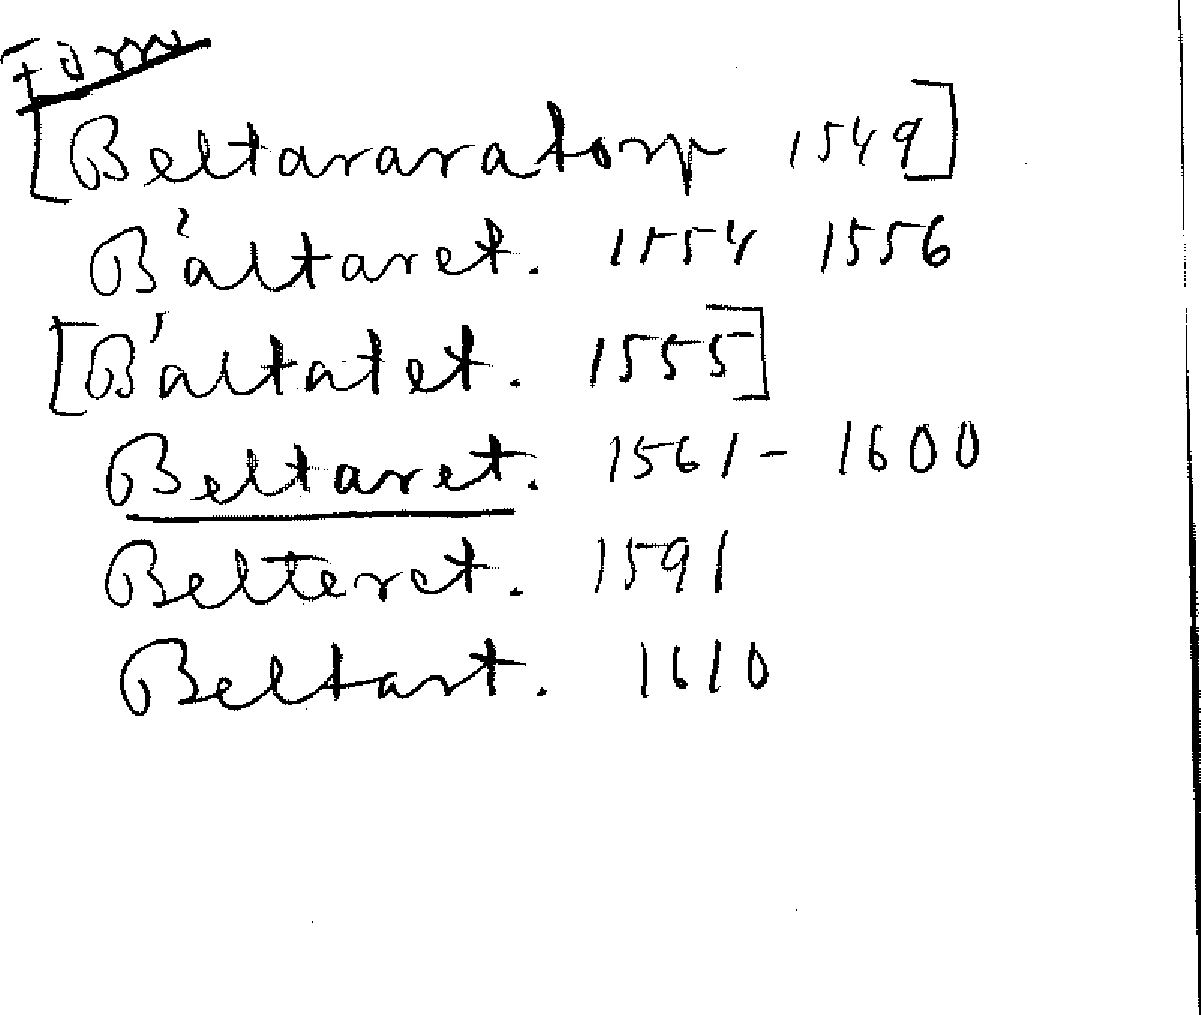 Form
[Beltararatorp 1549]
Bältaret. 1554 1556
[Bältatet. 1555]
Beltaret. 1561 - 1600
Belteret. 1591
Beltart. 1610